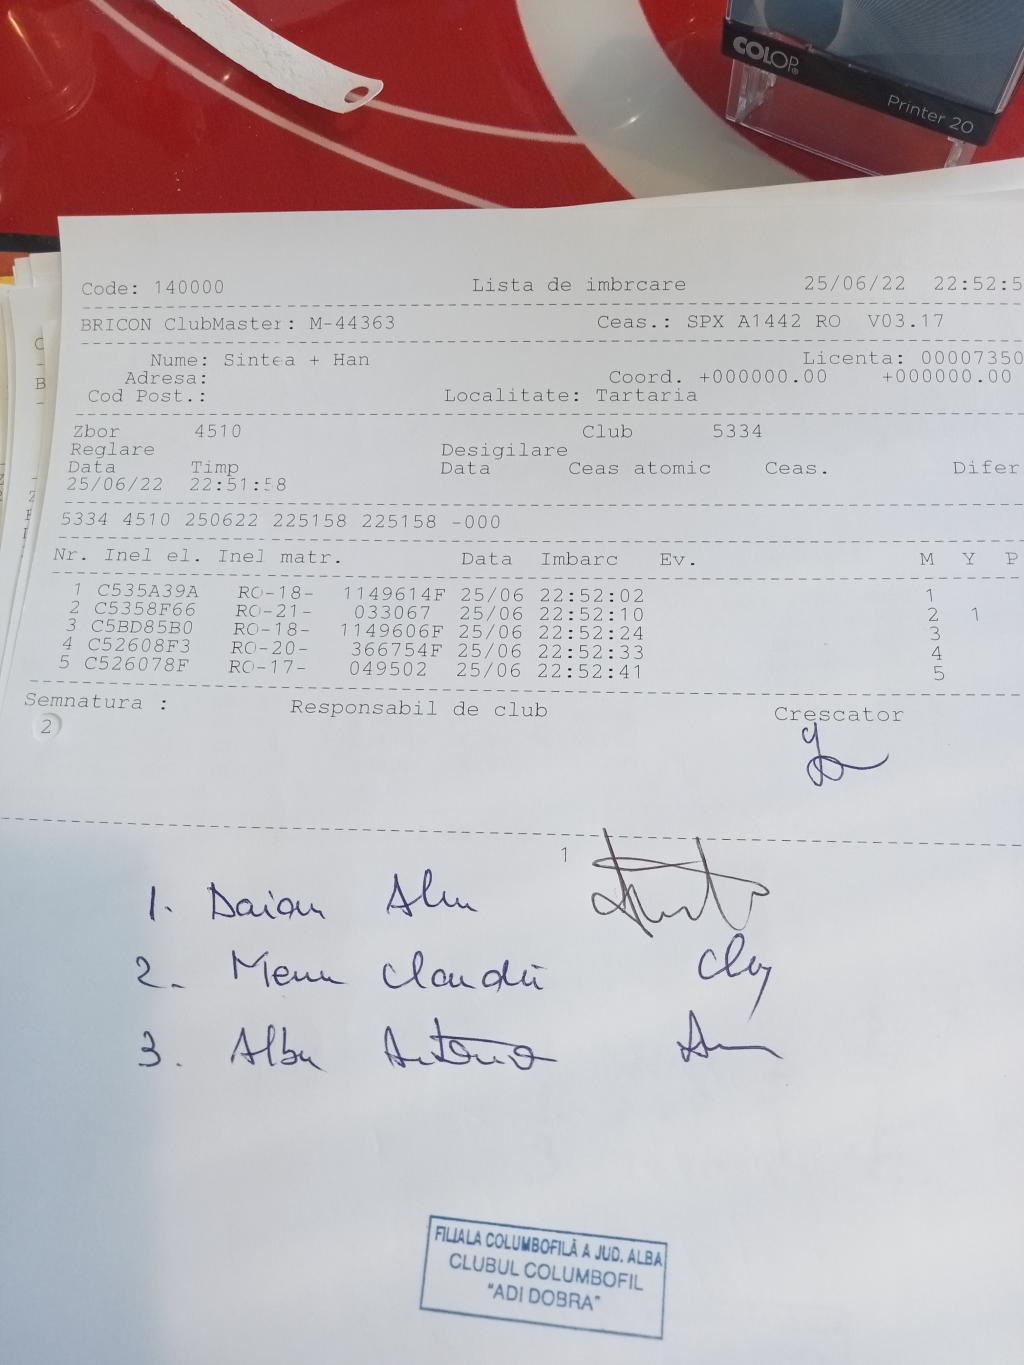 COLOP®
Printer 20
Code: 140000 Lista de imbrcare 25/06/22 22:52:5
BRICON ClubMaster: M-44363 Ceas.: SPX A1442 RO V03.17
Nume: Sintea + Han Licenta: 00007350
Adresa: Coord. +000000.00 +000000.00
Cod Post.: Localitate: Tartaria
Zbor 4510 Club 5334
Reglare Desigilare
Data Timp Data Ceas atomic Ceas. Difer
25/06/22 22:51:58
5334 4510 250622 225158 225158 -000
Nr. Inel el. Inel matr. Data Imbarc Ev. M Y P
1 C535A39A RO-18- 1149614F 25/06 22:52:02 1
2 C5358F66 RO-21- 033067 25/06 22:52:10 2 1
3 C5BD85B0 RO-18- 1149606F 25/06 22:52:24 3
4 C52608F3 RO-20- 366754F 25/06 22:52:33 4
5 C526078F RO-17- 049502 25/06 22:52:41 5
Semnatura : Responsabil de club Crescator
2
1
1. Daian
2. Claudiu
3. Albu Antonio
FILIALA COLUMBOFILĂ A JUD. ALBA
CLUBUL COLUMBOFIL
"ADI DOBRA"